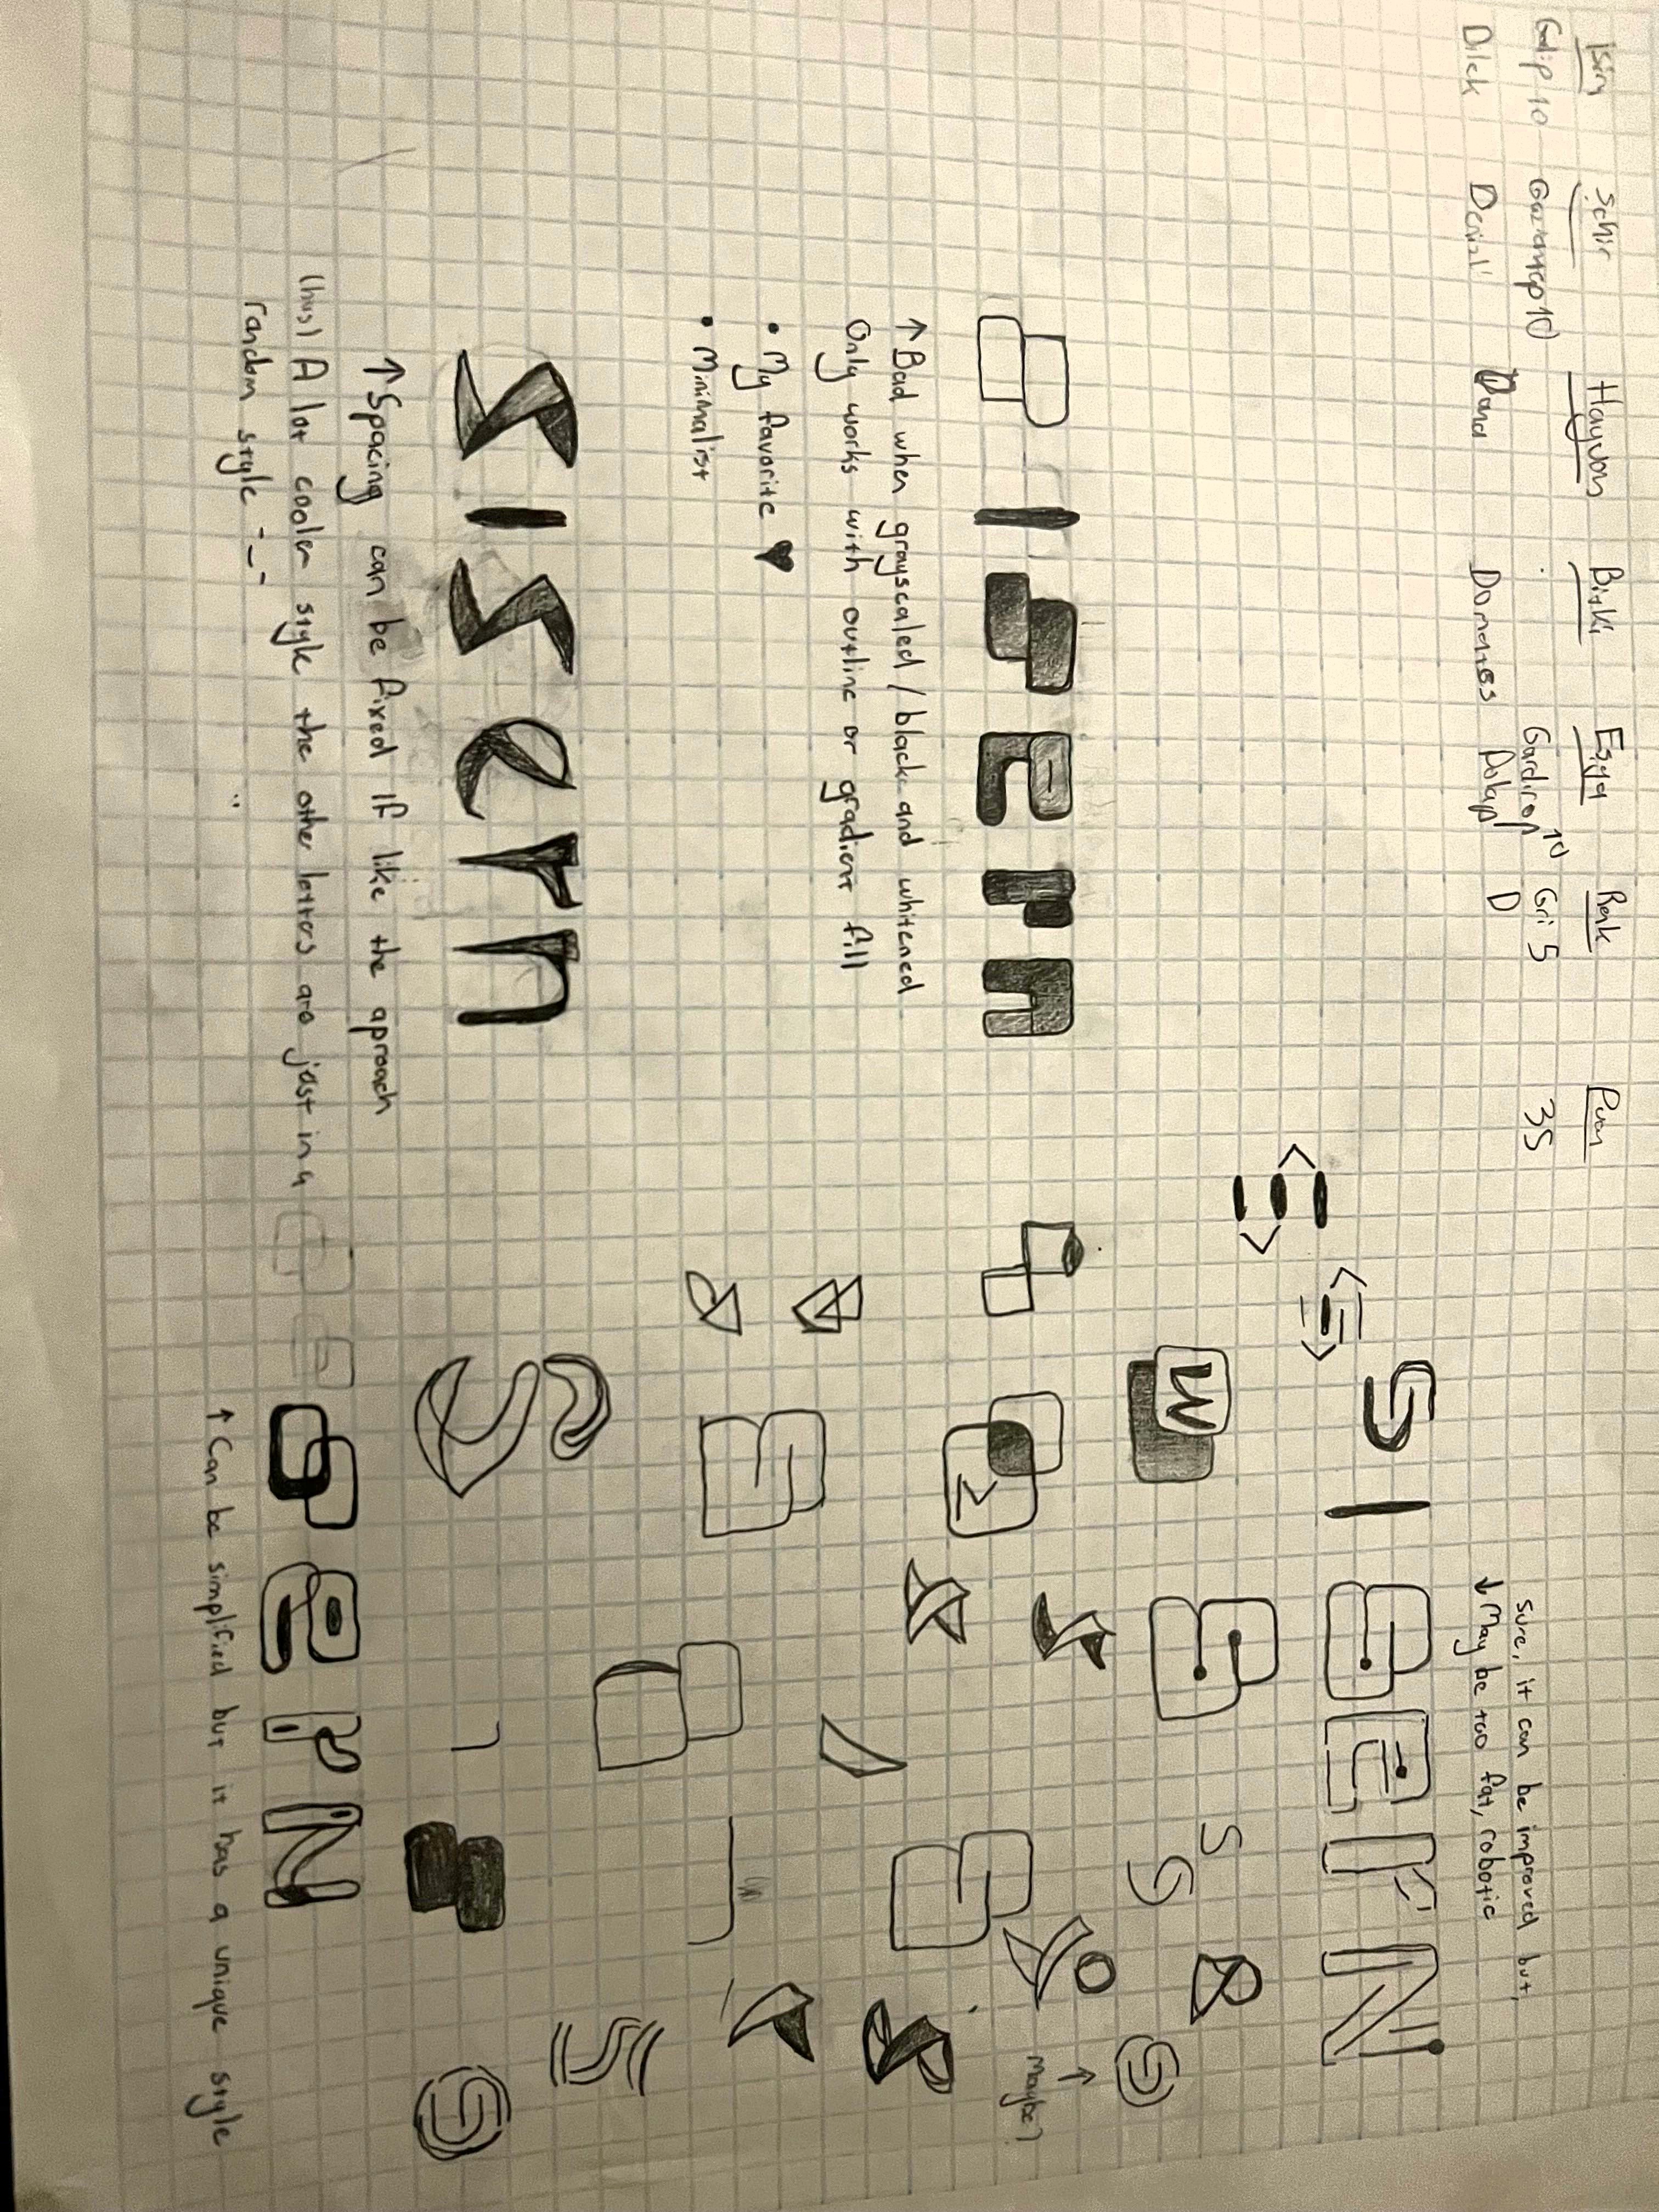 isim şehir Hayvan Bitki Eşya Renk Puan
Galip 10 Gaziantep 10 Gardırop 10 Gri 5 35
Dilek Denizli Dana Domates Dolap D
Sure, it can be improved but,
↓ May be too fat, robotic
S I S e r N
< >
< >
W
S
S
S
S
↑
Maybe?
S I S e r n
Σ
↑ Bad when grayscaled / black and whitened
Only works with outline or gradient fill
• My favorite ♥
• Minimalist
S I S e r n
↑ Spacing can be fixed If like the aproach
A lot cooler style the other letters are just in a
random style -_-
S e r N
↑ Can be simplified but it has a unique style